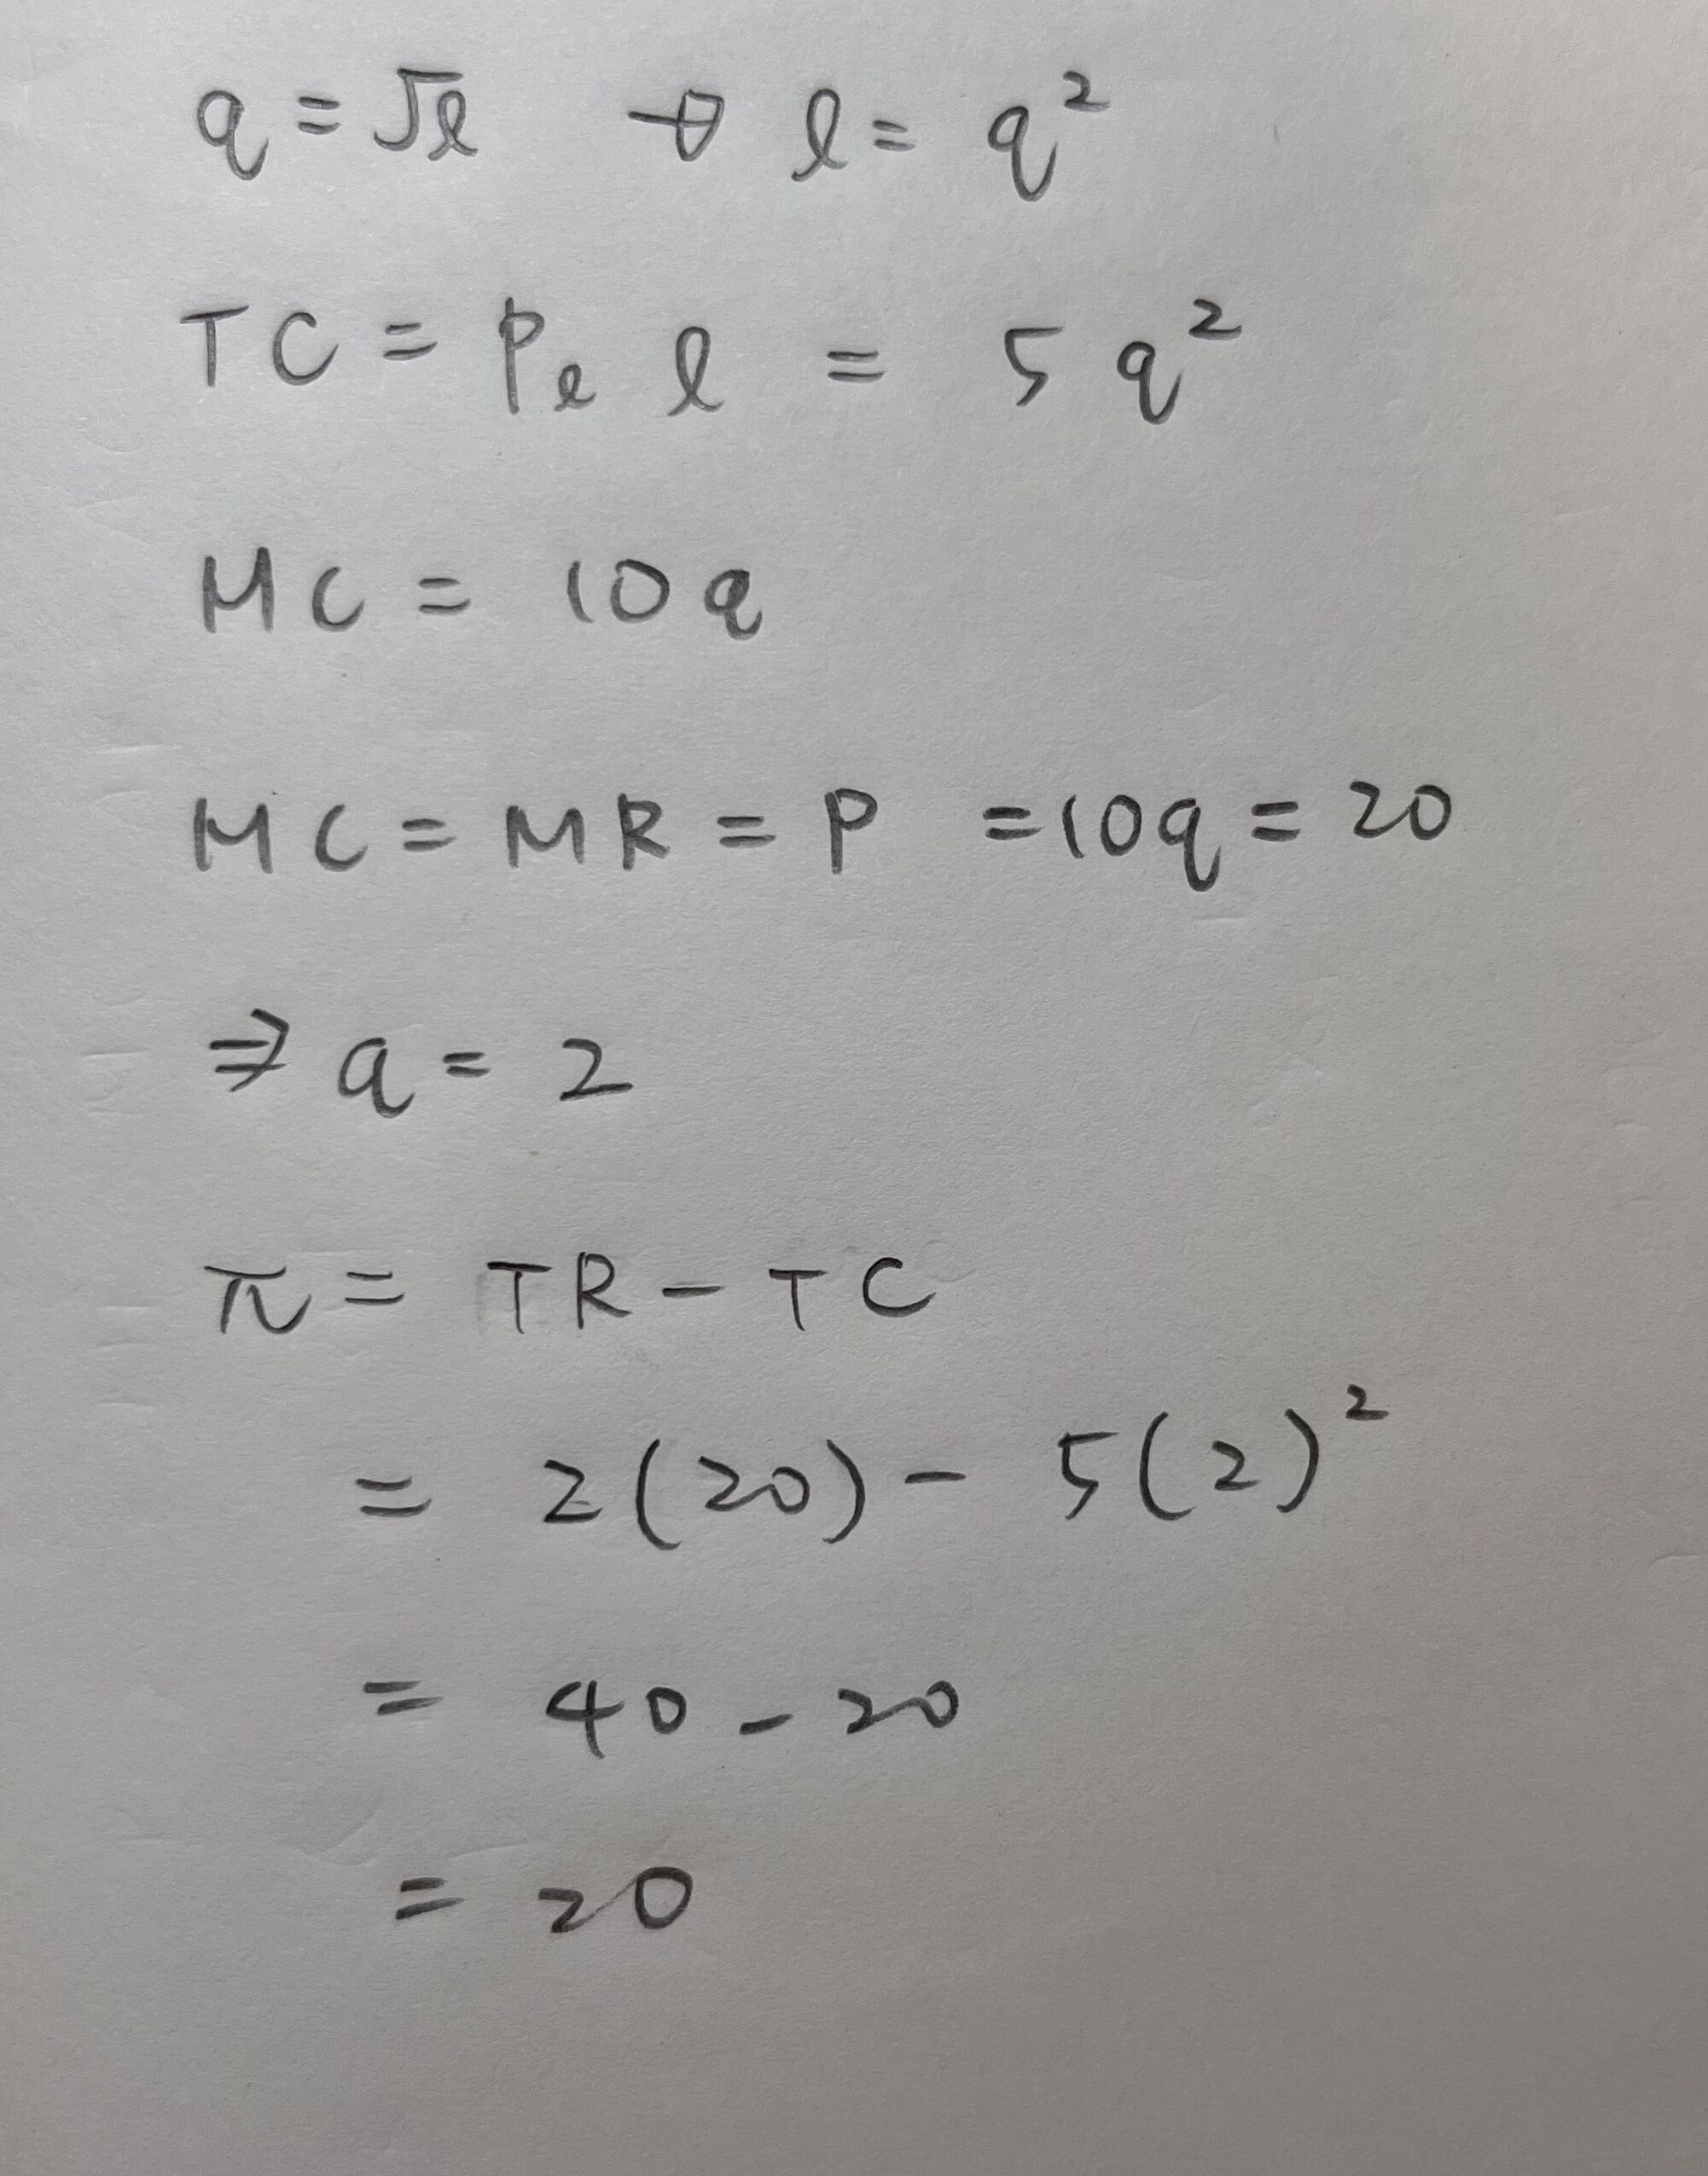 q = √l → l = q²
TC = Pₗ l = 5q²
MC = 10q
MC = MR = P = 10q = 20
⇒ q = 2
π = TR - TC
= 2(20) - 5(2)²
= 40 - 20
= 20